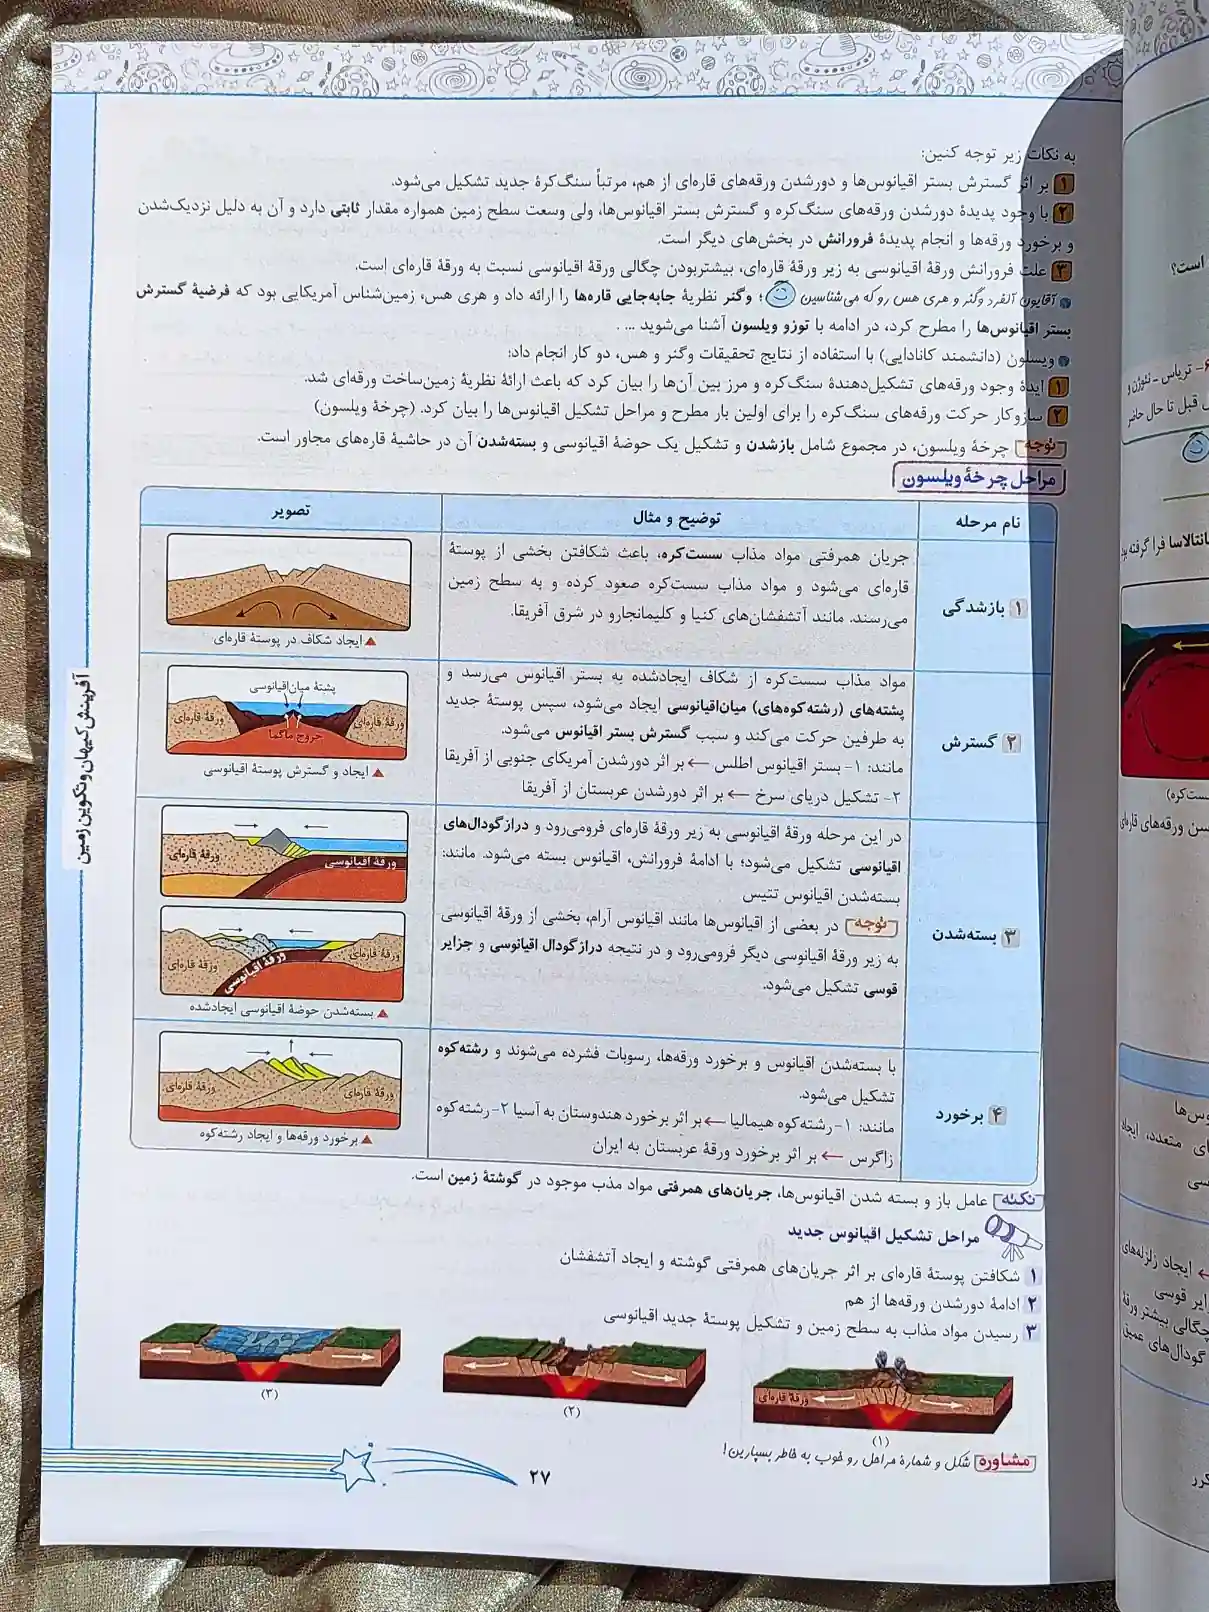 به نکات زیر توجه کنین:
۱ بر اثر گسترش بستر اقیانوس‌ها و دورشدن ورقه‌های قاره‌ای از هم، مرتباً سنگ‌کرهٔ جدید تشکیل می‌شود.
۲ با وجود پدیدهٔ دورشدن ورقه‌های سنگ‌کره و گسترش بستر اقیانوس‌ها، ولی وسعت سطح زمین همواره مقدار ثابتی دارد و آن به دلیل نزدیک‌شدن
و برخورد ورقه‌ها و انجام پدیدهٔ فرورانش در بخش‌های دیگر است.
۳ علت فرورانش ورقهٔ اقیانوسی به زیر ورقهٔ قاره‌ای، بیشتربودن چگالی ورقهٔ اقیانوسی نسبت به ورقهٔ قاره‌ای است.
آقایون آلفرد وگنر و هری هس رو که می‌شناسین؛ وگنر نظریهٔ جابه‌جایی قاره‌ها را ارائه داد و هری هس، زمین‌شناس آمریکایی بود که فرضیهٔ گسترش
بستر اقیانوس‌ها را مطرح کرد، در ادامه با توزو ویلسون آشنا می‌شوید ... .
ویسلون (دانشمند کانادایی) با استفاده از نتایج تحقیقات وگنر و هس، دو کار انجام داد:
۱ ایدهٔ وجود ورقه‌های تشکیل‌دهندهٔ سنگ‌کره و مرز بین آن‌ها را بیان کرد که باعث ارائهٔ نظریهٔ زمین‌ساخت ورقه‌ای شد.
۲ سازوکار حرکت ورقه‌های سنگ‌کره را برای اولین بار مطرح و مراحل تشکیل اقیانوس‌ها را بیان کرد. (چرخهٔ ویلسون)
توجه چرخهٔ ویلسون، در مجموع شامل بازشدن و تشکیل یک حوضهٔ اقیانوسی و بسته‌شدن آن در حاشیهٔ قاره‌های مجاور است.
مراحل چرخهٔ ویلسون
نام مرحله
توضیح و مثال
تصویر
۱ بازشدگی
جریان همرفتی مواد مذاب سست‌کره، باعث شکافتن بخشی از پوستهٔ
قاره‌ای می‌شود و مواد مذاب سست‌کره صعود کرده و به سطح زمین
می‌رسند. مانند آتشفشان‌های کنیا و کلیمانجارو در شرق آفریقا.
▲ ایجاد شکاف در پوستهٔ قاره‌ای
۲ گسترش
مواد مذاب سست‌کره از شکاف ایجادشده به بستر اقیانوس می‌رسد و
پشته‌های (رشته‌کوه‌های) میان‌اقیانوسی ایجاد می‌شود، سپس پوستهٔ جدید
به طرفین حرکت می‌کند و سبب گسترش بستر اقیانوس می‌شود.
مانند: ۱- بستر اقیانوس اطلس ← بر اثر دورشدن آمریکای جنوبی از آفریقا
۲- تشکیل دریای سرخ ← بر اثر دورشدن عربستان از آفریقا
پشتهٔ میان‌اقیانوسی
ورقهٔ قاره‌ای
ورقهٔ قاره‌ای
خروج ماگما
▲ ایجاد و گسترش پوستهٔ اقیانوسی
۳ بسته‌شدن
در این مرحله ورقهٔ اقیانوسی به زیر ورقهٔ قاره‌ای فرومی‌رود و درازگودال‌های
اقیانوسی تشکیل می‌شود؛ با ادامهٔ فرورانش، اقیانوس بسته می‌شود. مانند:
بسته‌شدن اقیانوس تتیس
توجه در بعضی از اقیانوس‌ها مانند اقیانوس آرام، بخشی از ورقهٔ اقیانوسی
به زیر ورقهٔ اقیانوسی دیگر فرومی‌رود و در نتیجه درازگودال اقیانوسی و جزایر
قوسی تشکیل می‌شود.
ورقهٔ قاره‌ای
ورقهٔ اقیانوسی
ورقهٔ قاره‌ای
ورقهٔ قاره‌ای
ورقهٔ اقیانوسی
▲ بسته‌شدن حوضهٔ اقیانوسی ایجادشده
۴ برخورد
با بسته‌شدن اقیانوس و برخورد ورقه‌ها، رسوبات فشرده می‌شوند و رشته‌کوه
تشکیل می‌شود.
مانند: ۱- رشته‌کوه هیمالیا ← بر اثر برخورد هندوستان به آسیا ۲- رشته‌کوه
زاگرس ← بر اثر برخورد ورقهٔ عربستان به ایران
ورقهٔ قاره‌ای
ورقهٔ قاره‌ای
▲ برخورد ورقه‌ها و ایجاد رشته‌کوه
نکته عامل باز و بسته شدن اقیانوس‌ها، جریان‌های همرفتی مواد مذب موجود در گوشتهٔ زمین است.
مراحل تشکیل اقیانوس جدید
۱ شکافتن پوستهٔ قاره‌ای بر اثر جریان‌های همرفتی گوشته و ایجاد آتشفشان
۲ ادامهٔ دورشدن ورقه‌ها از هم
۳ رسیدن مواد مذاب به سطح زمین و تشکیل پوستهٔ جدید اقیانوسی
ورقهٔ قاره‌ای
(۱)
(۲)
(۳)
مشاوره شکل و شمارهٔ مراحل رو خوب به خاطر بسپارین!
۲۷
آفرینش کیهان و تکوین زمین
است؟
۶- تریاس - نئوژن و
قبل تا حال حاضر
پانتالاسا فرا گرفته بود
سست‌کره)
ورقه‌های قاره‌ای
ای متعدد، ایجاد
ایجاد زلزله‌های
قوسی
چگالی بیشتر ورقهٔ
گودال‌های عمیق